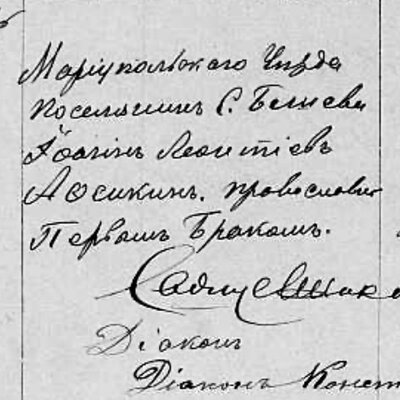 Маріупольскаго Уѣзда
Поселянинъ С. Бешева
Іоакимъ Леонтіевъ
православн
Первымъ Бракомъ.
Діаконъ
Діаконъ Конст